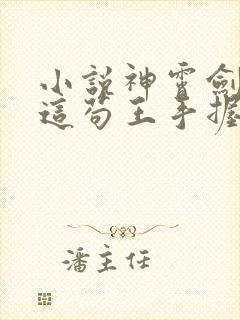 小說神霄劍
這苟王手握
潘主任